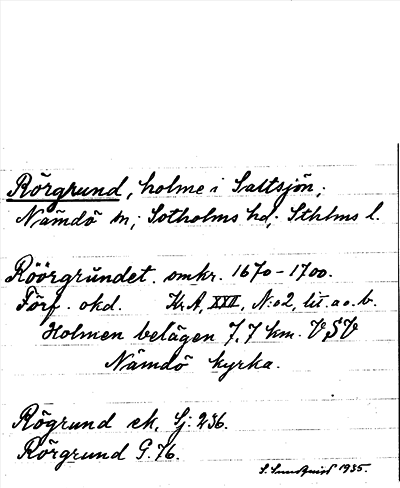 Rörgrund, holme i Saltsjön;
Nämdö sn; Sotholms hd; Sthlms l.
Röörgrundet. omkr. 1670-1700.
Förf. okd. Kr.A, XXII, N:o2, lit. a o. b.
Holmen belägen 7,7 km. VSV
Nämdö kyrka.
Rögrund ek. Sj: 236.
Rörgrund G. 76.
S. Sundquist 1935.